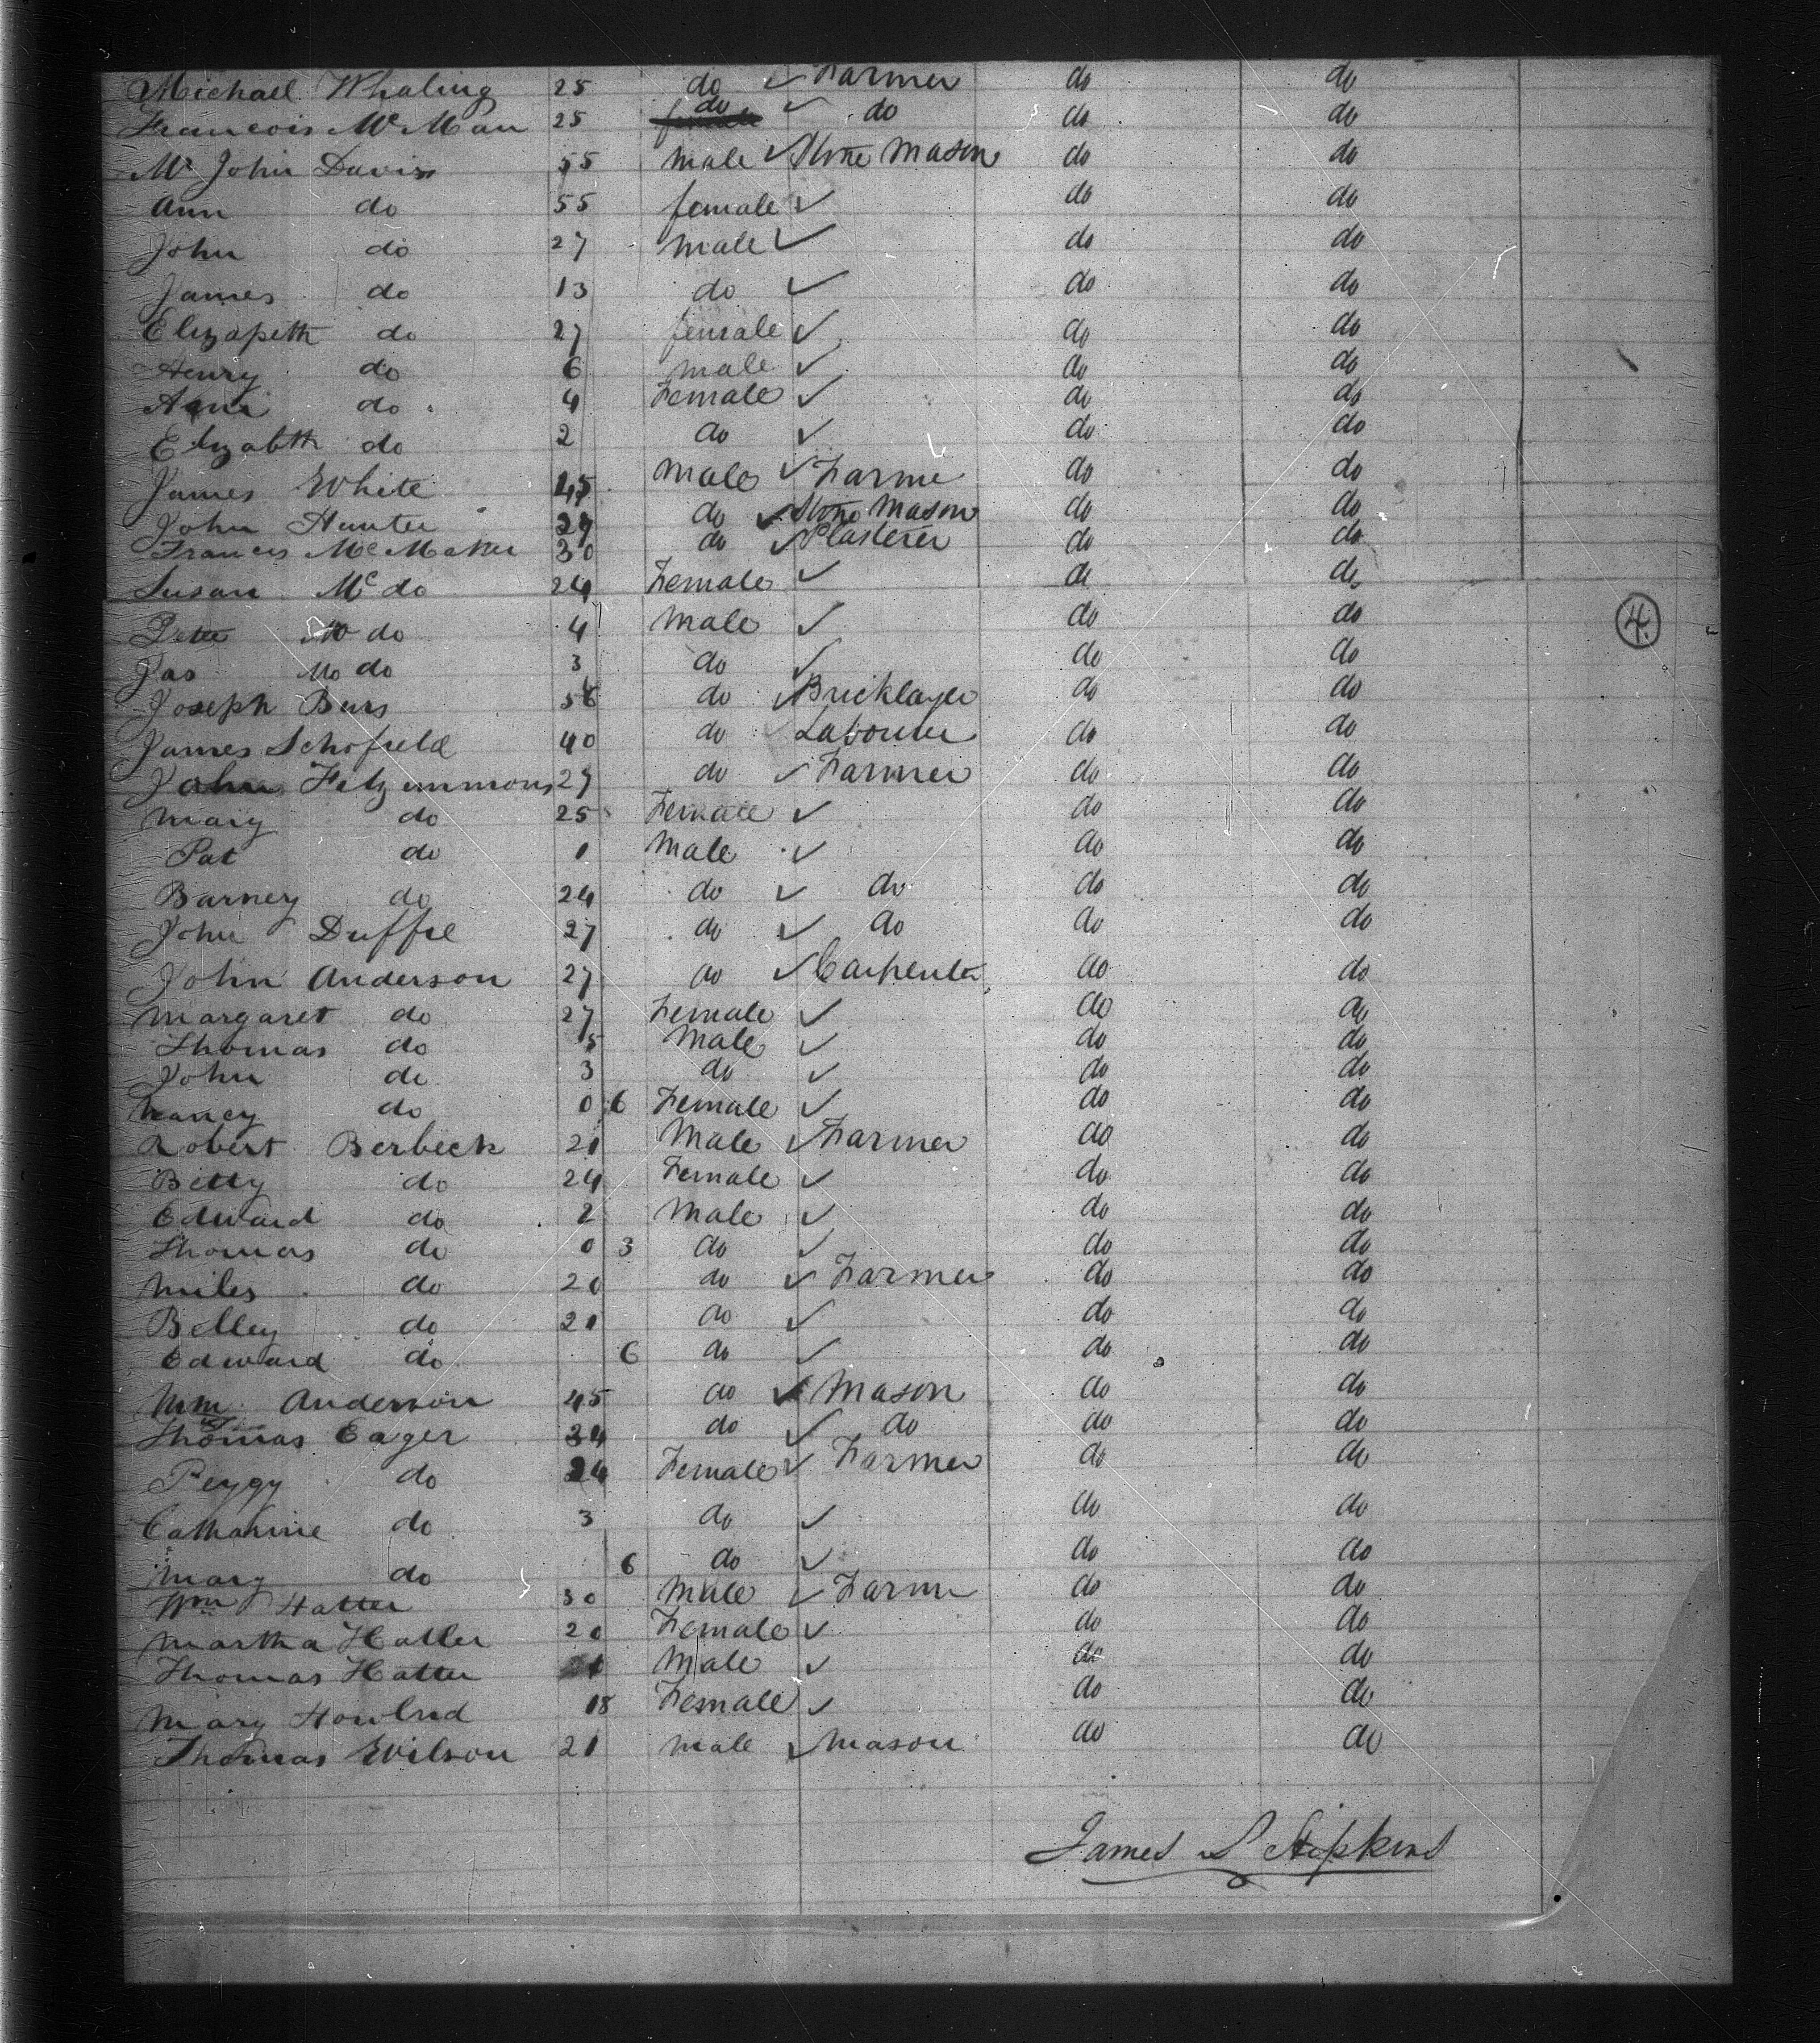 Michael Whaling 25 do ✓ Farmer do do
Francois Mc Man 25 do ✓ do do do
Mr John Davis 55 male ✓ Stone Mason do do
Ann do 55 female ✓ do do
John do 27 male ✓ do do
James do 13 do ✓ do do
Elizapeth do 27 female ✓ do do
Henry do 6 male ✓ do do
Ann do 4 Female ✓ do do
Elizabth do 2 do ✓ do do
James White 45 Male ✓ Farme do do
John Hunter 24 do ✓ Stone Mason do do
Francis McMaker 30 do ✓ Plasterer do do
Susan Mc do 24 Female ✓ do do
Peter Mc do 4 Male ✓ do do 4.
Jas Mc do 3 do ✓ do do
Joseph Burs 56 do ✓ Bricklayer do do
James Schofield 40 do Labourer do do
John Fitzimmons 27 do ✓ Farmer do do
Mary do 25 Female ✓ do do
Pat do 1 Male ✓ do do
Barney do 24 do ✓ do do do
John Duffie 27 do ✓ do do do
John Anderson 27 do ✓ Carpenter do do
Margaret do 27 Female ✓ do do
Thomas do 5 Male ✓ do do
John do 3 do ✓ do do
Nancy do 0 6 Female ✓ do do
Robert Berbeck 21 Male ✓ Farmer do do
Betty do 24 Female ✓ do do
Edward do 2 Male ✓ do do
Thomas do 0 3 do ✓ do do
Miles do 20 do ✓ Farmer do do
Belley do 21 do ✓ do do
Edward do 6 do ✓ do do
Wm Anderson 45 do ✓ Mason do do
Thomas Eager 34 do ✓ do do do
Peygy do 24 Female ✓ Farmer do do
Catharine do 3 do ✓ do do
Mary do 6 do ✓ do do
Wm Hatter 30 Male ✓ Farm do do
Martha Hatter 20 Female ✓ do do
Thomas Hatter 1 Male ✓ do do
Mary Howlnd 18 Female ✓ do do
Thomas Wilson 21 male ✓ Mason do do
James S Hopkins